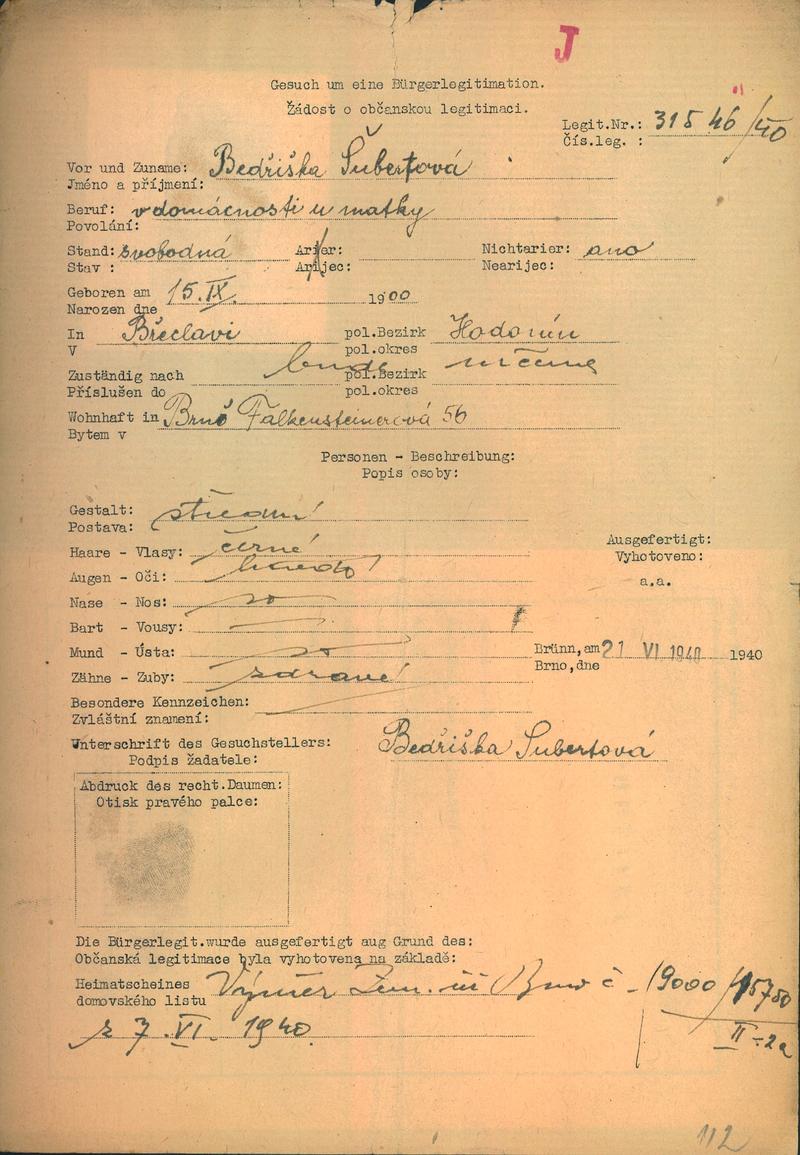 J
Gesuch um eine Bürgerlegitimation.
Žádost o občanskou legitimaci.
Legit.Nr.: 31546/40
Čís.leg. :
Vor und Zuname: Bedřiška Šubertová
Jméno a příjmení:
Beruf: v domácnosti u matky
Povolání:
Stand: svobodná Arier: Nichtarier: ano
Stav : Arijec: Nearijec:
Geboren am 15.IX. 1900
Narozen dne
In Břeclavi pol.Bezirk Hodonín
V pol.okres
Zuständig nach bude pol.Bezirk určena
Příslušen do pol.okres
Wohnhaft in Brně Falkensteinerová 56
Bytem v
Personen - Beschreibung:
Popis osoby:
Gestalt: střední
Postava:
Ausgefertigt:
Haare - Vlasy: černé
Vyhotoveno:
Augen - Oči: hnědé
a.a.
Nase - Nos:
Bart - Vousy:
Mund - Ústa: Brünn, am 21 VI 1940 1940
Brno, dne
Zähne - Zuby: zdravé
Besondere Kennzeichen:
Zvláštní znamení:
Unterschrift des Gesuchstellers: Bedřiška Šubertová
Podpis žadatele:
Abdruck des recht.Daumen:
Otisk pravého palce:
Die Bürgerlegit.wurde ausgefertigt aug Grund des:
Občanská legitimace byla vyhotovena na základě:
Heimatscheines Výměr Zem. úř Brno č - 19000
domovského listu II-2a
z 7.VI. 1940
112